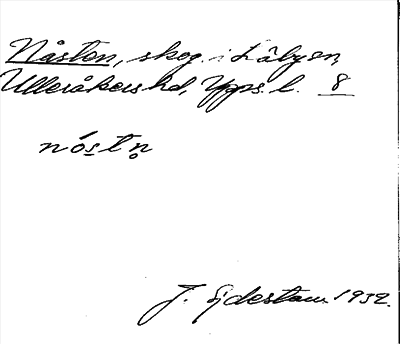 Nåsten, skog i Läby sn,
Ulleråkers hd, Upps. l. 8
nóstn̥
J. Ejdestam 1932.